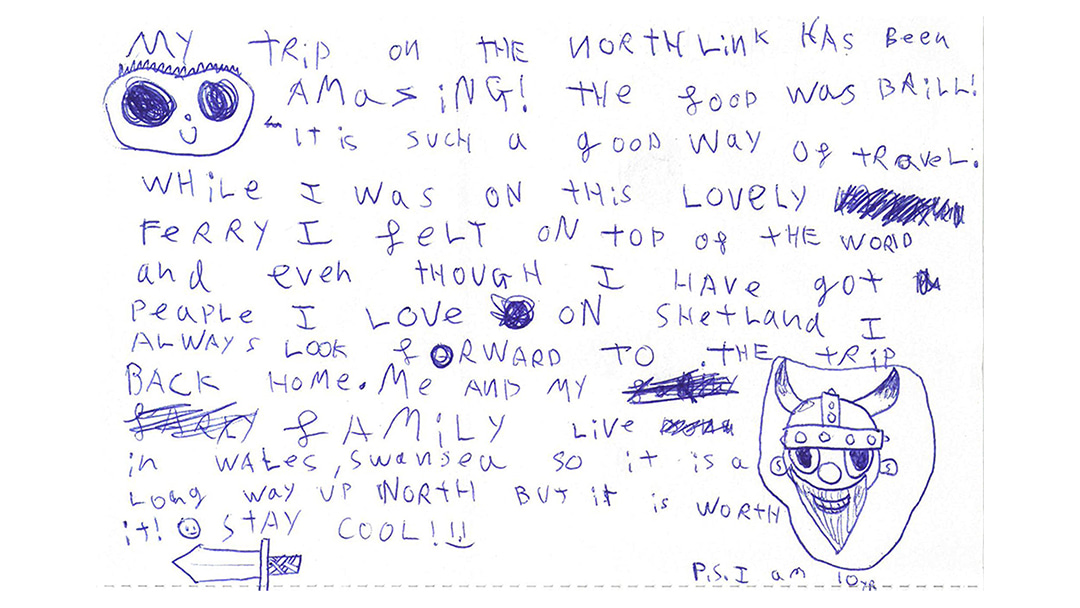 MY TRiP on THE NORTHLiNK HAS Been
AMaSiNG! tHe fooD was BRiLL!
It is SUCH a gooD way Of tRaveL.
WHiLe I was ON tHis LOVELY
FeRRY I feLT ON TOP of tHE WORlD
and even tHOUGH I HAVe got
PeaPLe I LOVe ON SHetLand I
ALWAYS LOOK fORWARD TO .THE tRiP
BACK HOMe. Me AND MY
fAMiLY Live
in WALes, Swansea so it is a
LONG way UP NORTH BUT it is WORTH
it! StAY COOL!
P.S. I am 10YR
S S